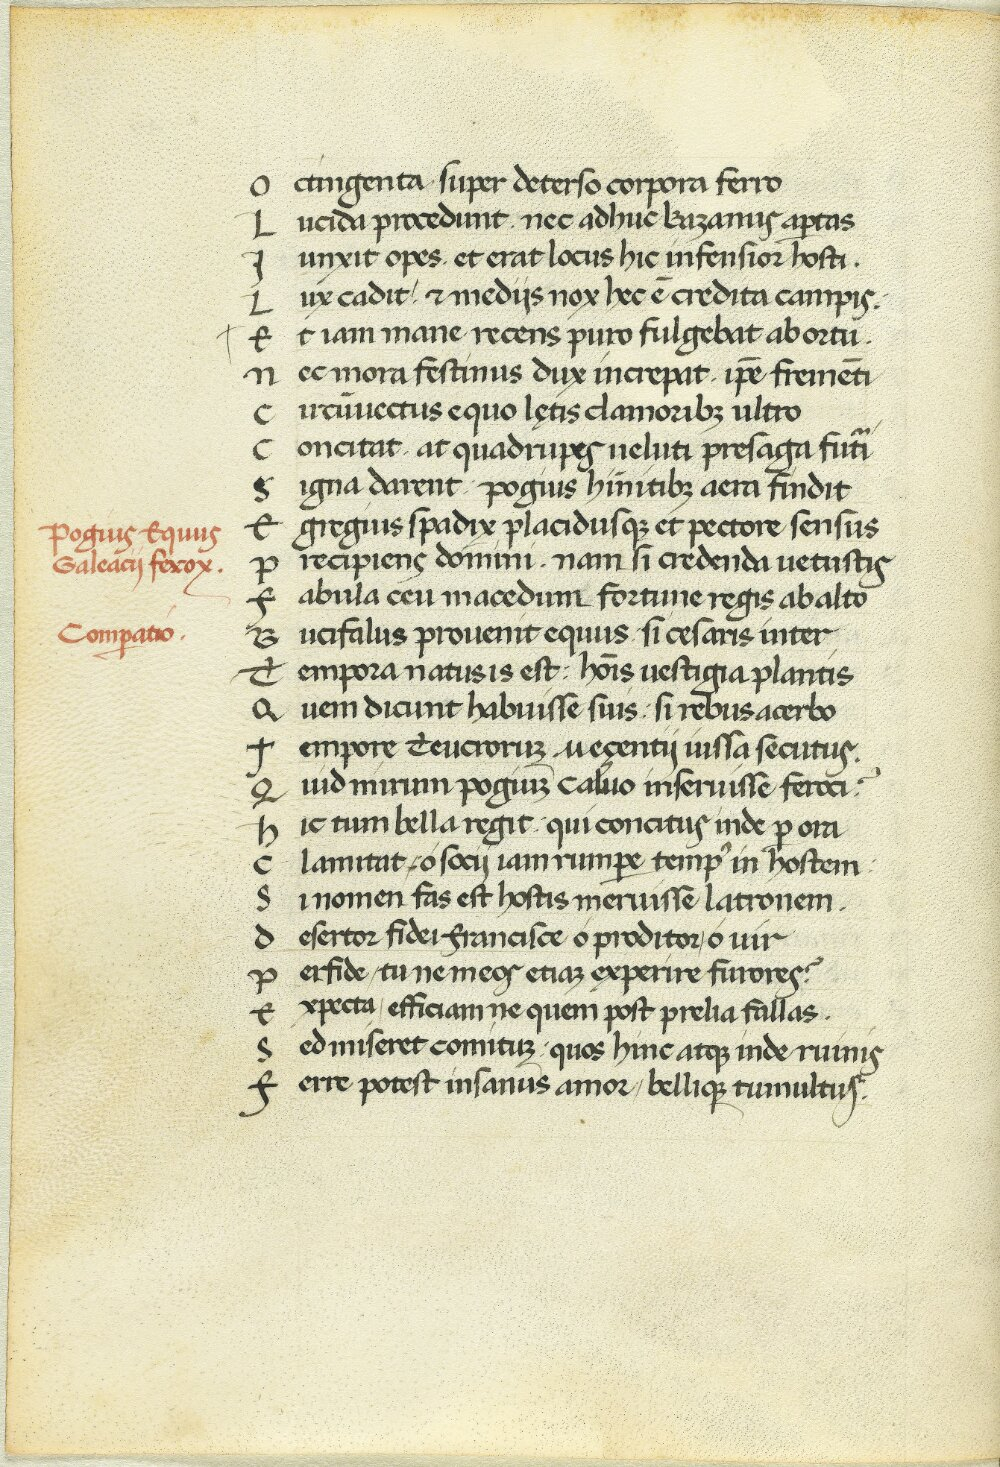 O ctingenta · super deterso corpora ferro
L ucida procedunt · nec adhuc kazamus aptas
I unxit opes · et erat locus hic infensior hosti ·
L ux cadit / & medijs nox hec ē credita campis ·
E t iam mane recens puro fulgebat ab ortu ·
N ec mora festinus dux increpat · ip̄e fremēti
C ircūuectus equo lętis clamoribꝫ ultro
C oncitat · at quadrupes ueluti presaga futi
S igna darent · pogius hinnitibꝫ aera findit
Pogius Equus
E gregius spadix placidusqꝫ et pectore sensus
Galeacij ferox ·
P recipiens domini · nam si credenda uetustis
F abula ceu macedum fortune regis ab alto
Compatio ·
B ucifalus prouenit equus · si cesaris inter
T empora natus is est : hoīs uestigia plantis
Q uem dicunt habuisse suis : si rebus acerbo
T empore Teucroruꝫ · uęcentij iussa secutus ·
Q uid mirum pogiuꝫ caluo inseruisse feroci ?
H ic tum bella regit · qui concitus inde p ora
C lamitat / o socij iam rumpe temp⁹ in hostem ·
S i nomen fas est hostis meruisse latronem ·
D esertor fidei francisce o proditor / o uir
P erfide / tu ne meos etiaꝫ experire furores ?
E xpecta / efficiam ne quem post prelia fallas ·
S ed miseret comituꝫ · quos hinc atqꝫ inde ruinis
F erre potest insanus amor / belliqꝫ tumultus ·